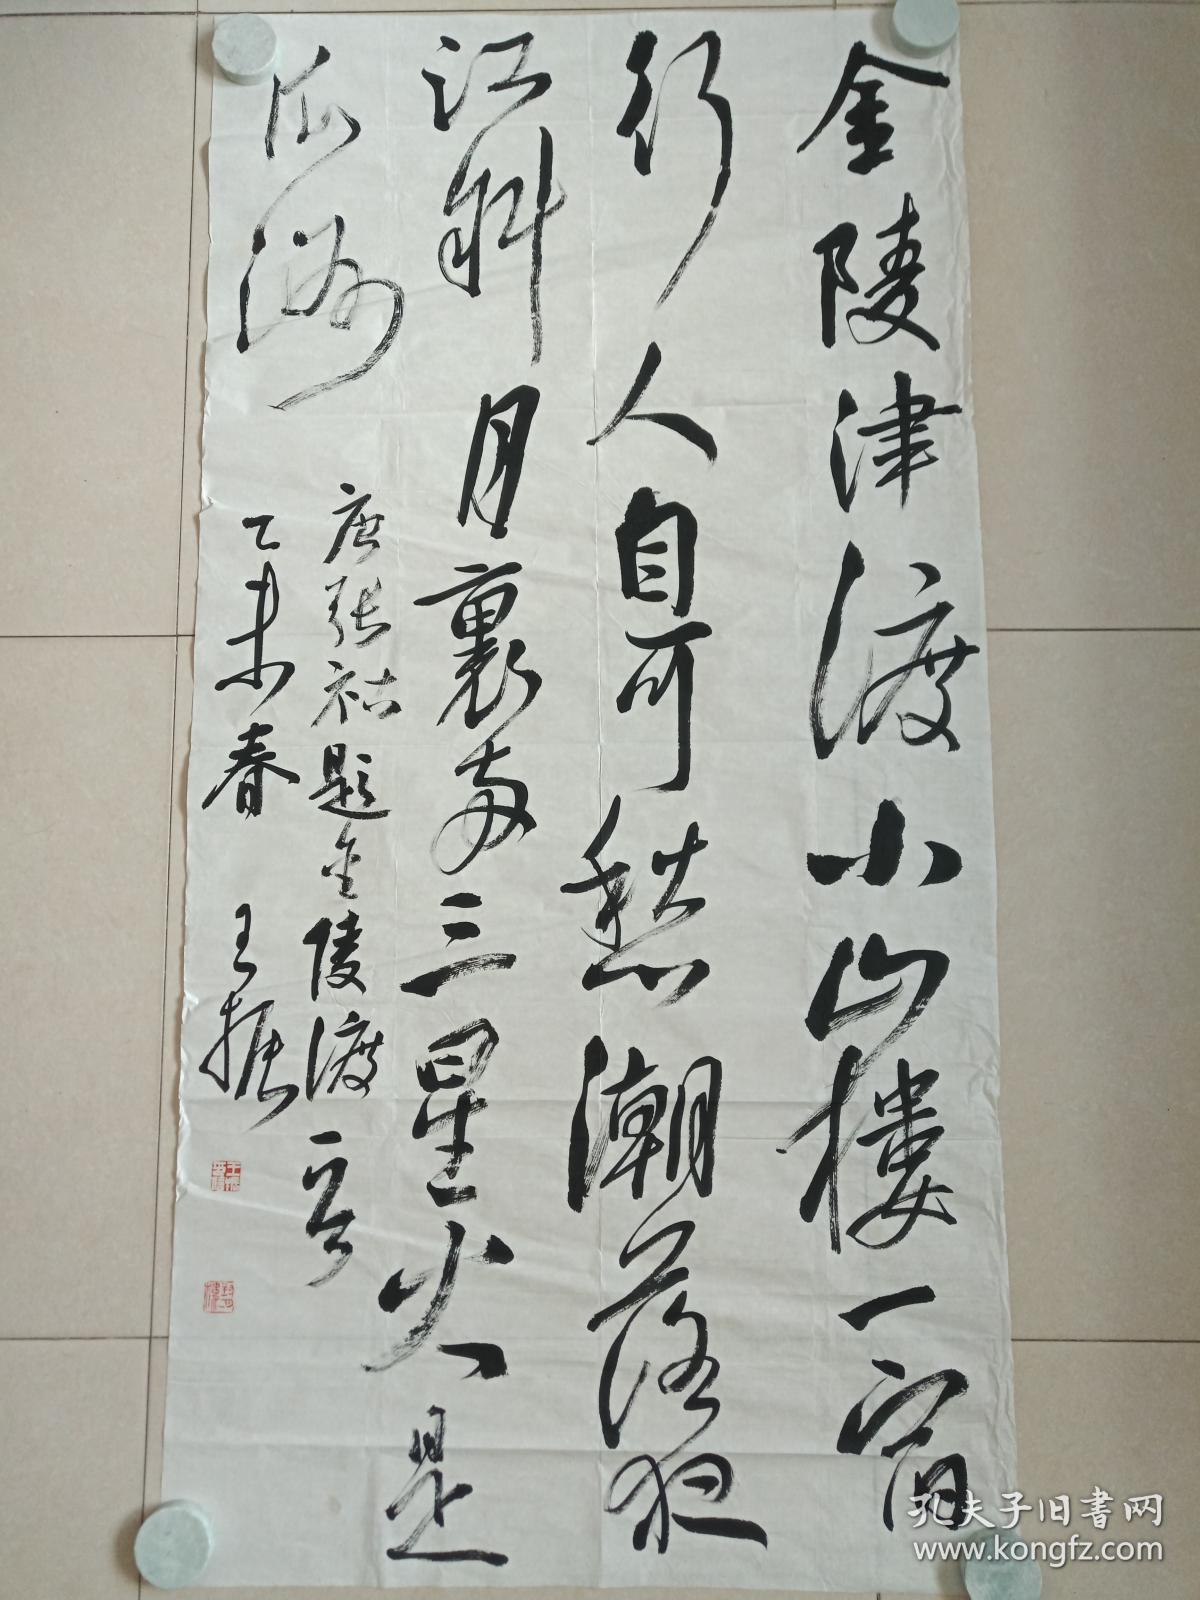 金陵津渡小山樓一宵
行人自可愁潮落夜
江斜月裏兩三星火是
瓜洲
唐張祜題金陵渡一首
乙未春 王振
孔夫子旧書网
www.kongfz.com